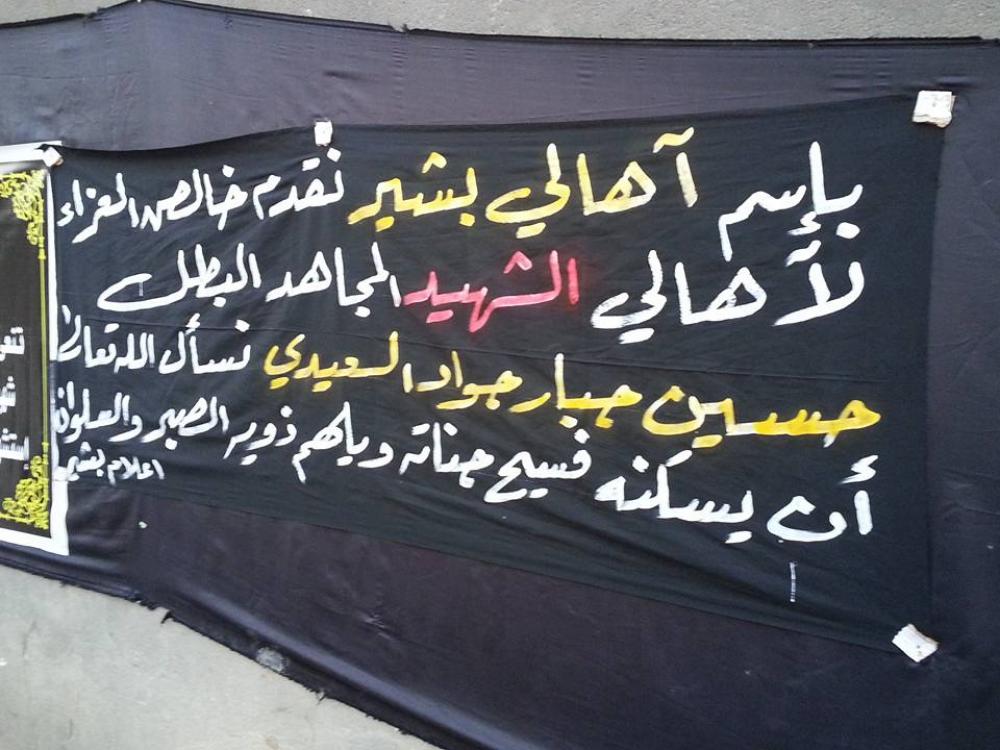 بإسم آهالي بشير نقدم خالص العزاء
لآهالي الشهيد المجاهد البطل
حسين جبار جواد السعيدي نسأل الله تعالى
أن يسكنه فسيح جناته ويلهم ذويه الصبر والسلوان
اعلام بشير